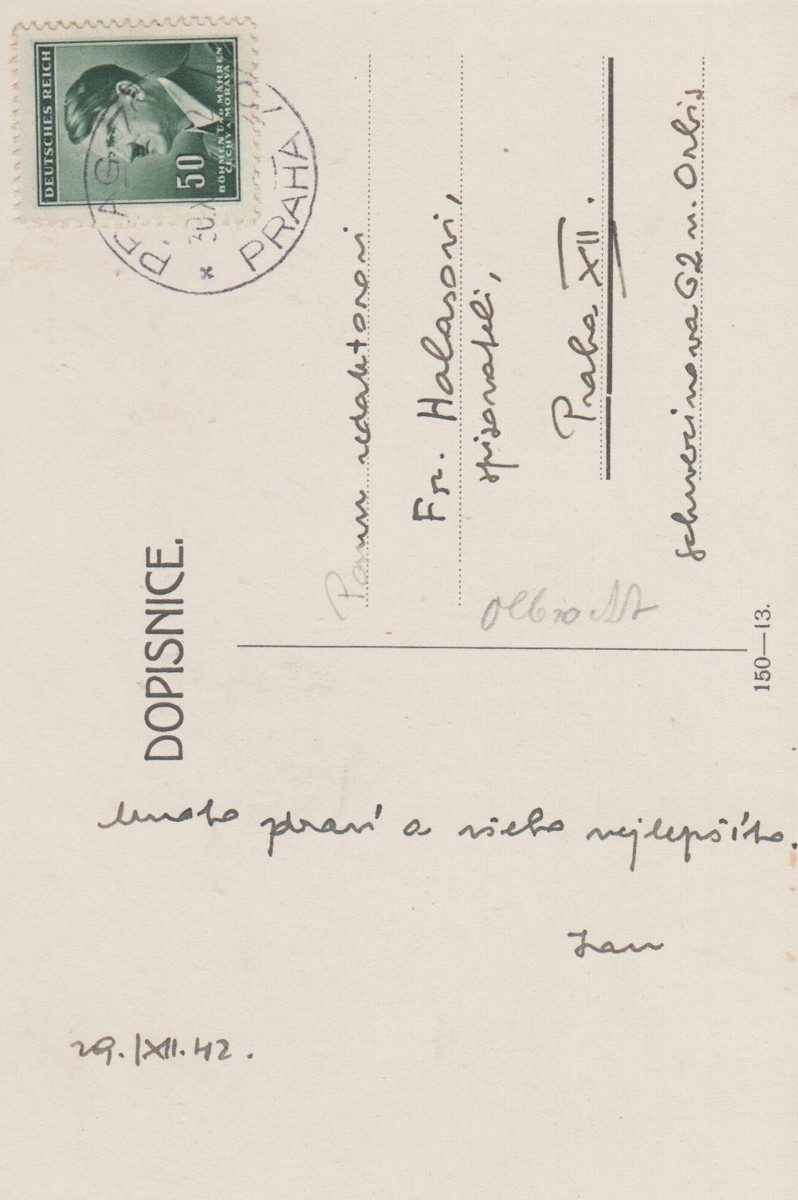 DEUTSCHES REICH
50
BÖHMEN UND MÄHREN
ČECHY A MORAVA
PRAG
PRAHA V
* 30.X
DOPISNICE.
Panu redaktorovi
Fr. Halasovi,
spisovateli,
Praha XII.
Schwerinova 62 n. Orbis
Olbracht
150—13.
Mnoho zdraví a všeho nejlepšího.
Ivan
29./XII.42.